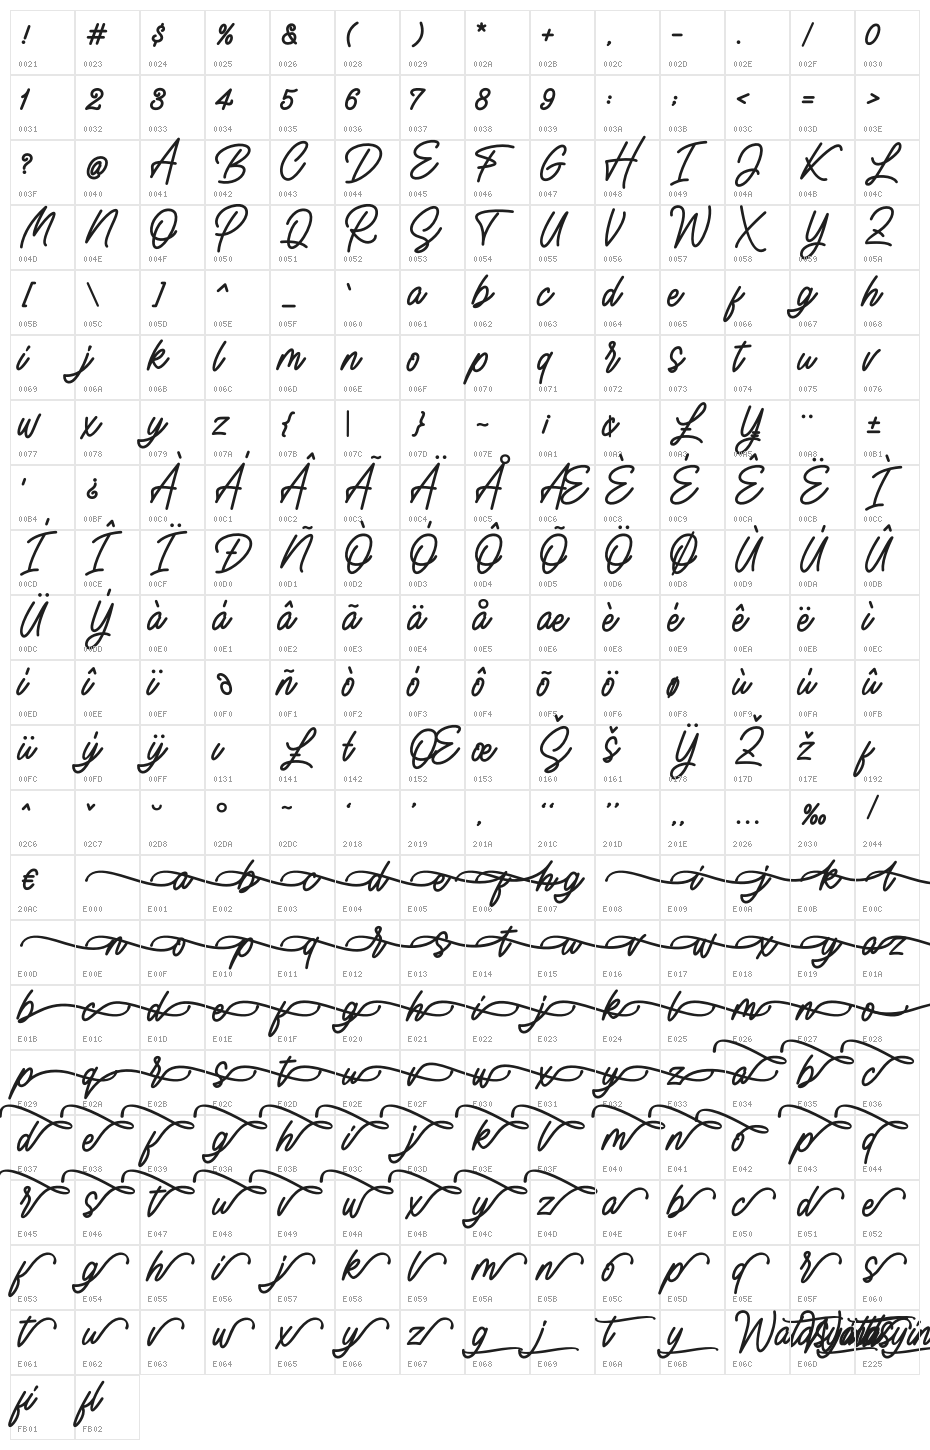 ! # $ % & ( ) * + , - . / 0
0021 0023 0024 0025 0026 0028 0029 002A 002B 002C 002D 002E 002F 0030
1 2 3 4 5 6 7 8 9 : ; < = >
0031 0032 0033 0034 0035 0036 0037 0038 0039 003A 003B 003C 003D 003E
? @ A B C D E F G H I J K L
003F 0040 0041 0042 0043 0044 0045 0046 0047 0048 0049 004A 004B 004C
M N O P Q R S T U V W X Y Z
004D 004E 004F 0050 0051 0052 0053 0054 0055 0056 0057 0058 0059 005A
[ \ ] ^ _ ` a b c d e f g h
005B 005C 005D 005E 005F 0060 0061 0062 0063 0064 0065 0066 0067 0068
i j k l m n o p q r s t u v
0069 006A 006B 006C 006D 006E 006F 0070 0071 0072 0073 0074 0075 0076
w x y z { | } ~ ¡ ¢ £ ¥ ¨ ±
0077 0078 0079 007A 007B 007C 007D 007E 00A1 00A2 00A3 00A5 00A8 00B1
´ ¿ À Á Â Ã Ä Å Æ È É Ê Ë Ì
00B4 00BF 00C0 00C1 00C2 00C3 00C4 00C5 00C6 00C8 00C9 00CA 00CB 00CC
Í Î Ï Ð Ñ Ò Ó Ô Õ Ö Ø Ù Ú Û
00CD 00CE 00CF 00D0 00D1 00D2 00D3 00D4 00D5 00D6 00D8 00D9 00DA 00DB
Ü Ý à á â ã ä å æ è é ê ë ì
00DC 00DD 00E0 00E1 00E2 00E3 00E4 00E5 00E6 00E8 00E9 00EA 00EB 00EC
í î ï ð ñ ò ó ô õ ö ø ù ú û
00ED 00EE 00EF 00F0 00F1 00F2 00F3 00F4 00F5 00F6 00F8 00F9 00FA 00FB
ü ý ÿ ı Ł ł Œ œ Š š Ÿ Ž ž ƒ
00FC 00FD 00FF 0131 0141 0142 0152 0153 0160 0161 0178 017D 017E 0192
ˆ ˇ ˘ ˚ ˜ ‘ ’ ‚ “ ” „ … ‰ ⁄
02C6 02C7 02D8 02DA 02DC 2018 2019 201A 201C 201D 201E 2026 2030 2044
€ a b c d e f h g i j k l
20AC E000 E001 E002 E003 E004 E005 E006 E007 E008 E009 E00A E00B E00C
n o p q r s t u v w x y a z
E00D E00E E00F E010 E011 E012 E013 E014 E015 E016 E017 E018 E019 E01A
b c d e f g h i j k l m n o
E01B E01C E01D E01E E01F E020 E021 E022 E023 E024 E025 E026 E027 E028
p q r s t u v w x y z a b c
E029 E02A E02B E02C E02D E02E E02F E030 E031 E032 E033 E034 E035 E036
d e f g h i j k l m n o p q
E037 E038 E039 E03A E03B E03C E03D E03E E03F E040 E041 E042 E043 E044
r s t u v w x y z a b c d e
E045 E046 E047 E048 E049 E04A E04B E04C E04D E04E E04F E050 E051 E052
f g h i j k l m n o p q r s
E053 E054 E055 E056 E057 E058 E059 E05A E05B E05C E05D E05E E05F E060
t u v w x y z g j t y
E061 E062 E063 E064 E065 E066 E067 E068 E069 E06A E06B E06C E06D E225
fi fl
FB01 FB02